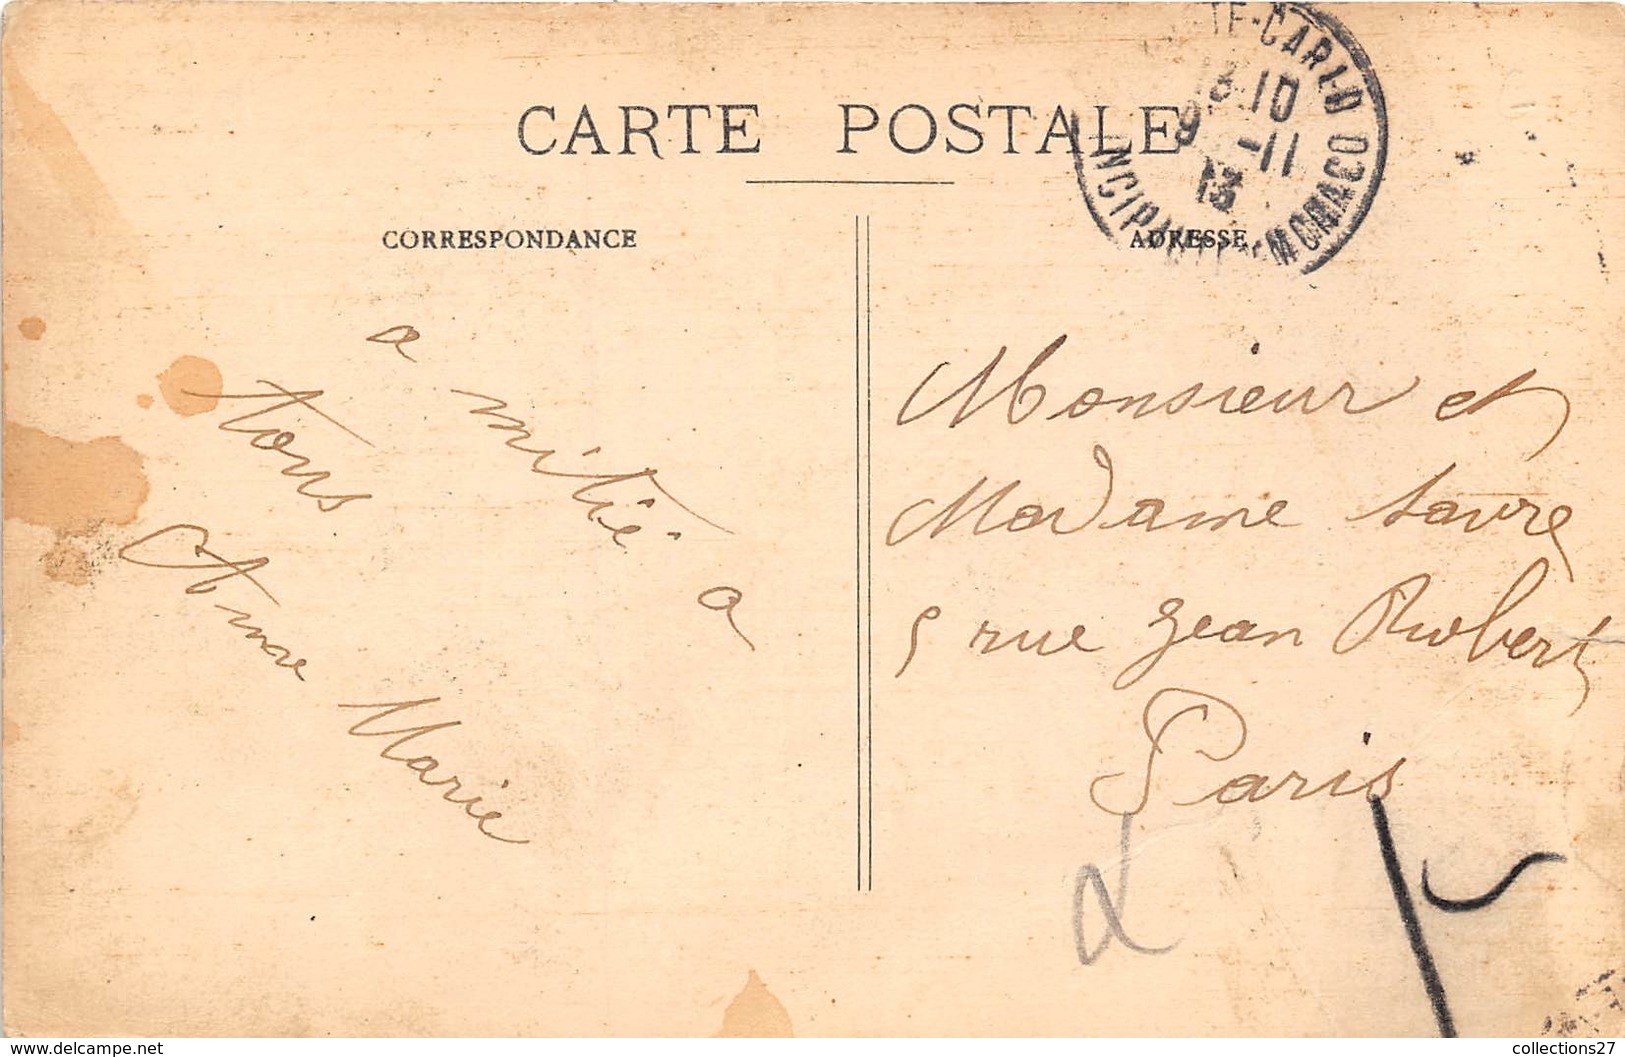 CARTE POSTALE
TE-CARLO
13 10
9 -11
13
NCIP MONACO
CORRESPONDANCE
ADRESSE
a mitié a
tous
Anna Marie
Monsieur et
Madame Favre
5 rue Jean Robert
Paris
https://www.delcampe.net
collections27